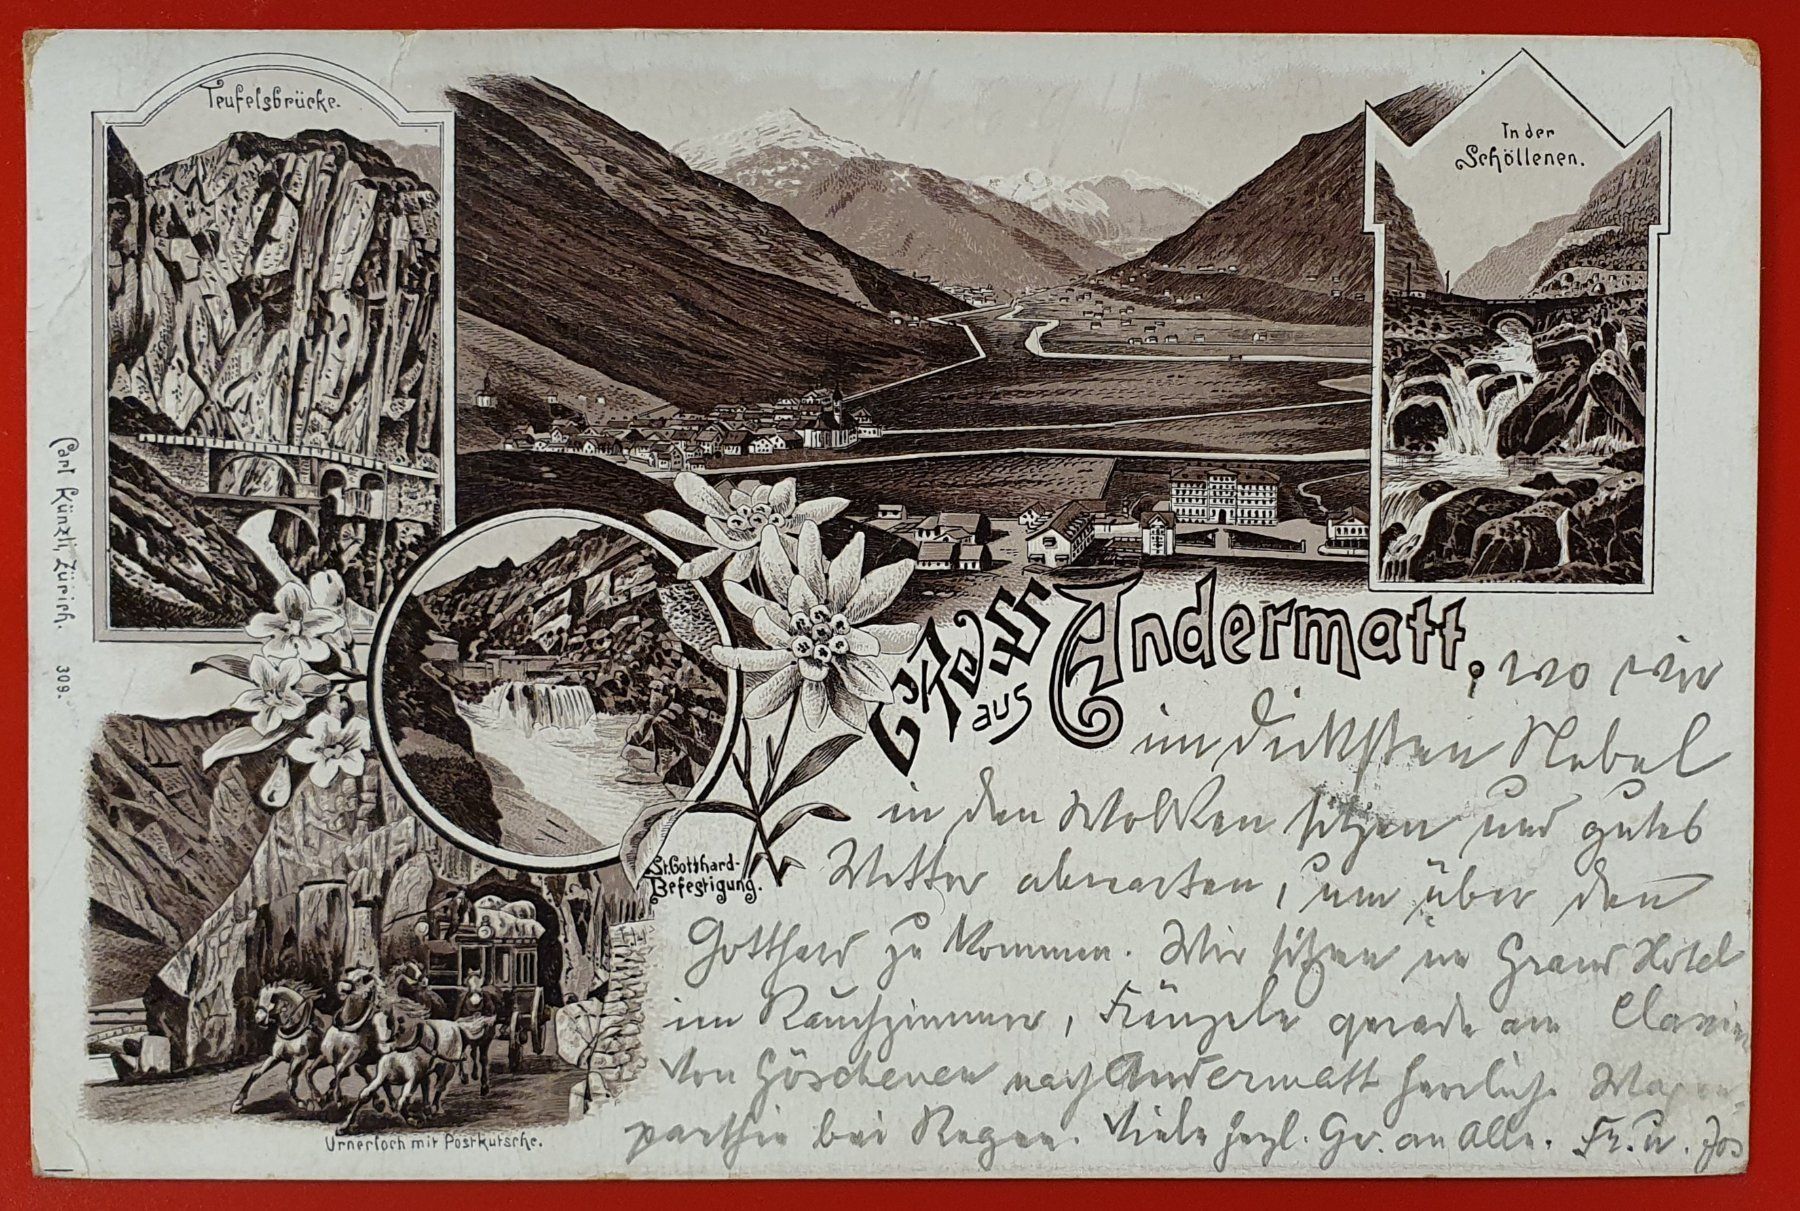 Teufelsbrücke.
In der
Schöllenen.
Carl Künzli, Zürich. 309.
St. Gotthard-
Befestigung.
Urnerloch mit Postkutsche.
Gruss
aus
Andermatt, wo wir
im dicksten Nebel
in den Wolken sitzen und gutes
Wetter abwarten, um über den
Gotthard zu kommen. Wir sitzen im Grand Hotel
im Rauchzimmer, Fränzele gerade am Clavier
Von Göschenen nach Andermatt herrliche Wagen-
parthie bei Regen. Viele herzl. Gr. an Alle. Fr. u. Jos